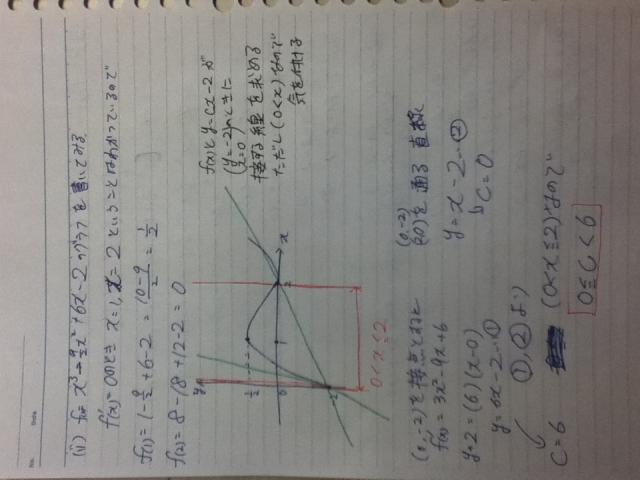 No.
Date
(ii) f(x) = x³ - 9/2 x² + 6x - 2 のグラフを書いてみる
f'(x) = 0のとき x = 1, x = 2 ということはわかっているので
f(1) = 1 - 9/2 + 6 - 2 = (10-9)/2 = 1/2
f(2) = 8 - 18 + 12 - 2 = 0
f(x)と y = cx - 2 が
(y = -2
x = 0) のときに
接する線を求める
ただし (0<x) なので
気を付ける
y
x
1/2
0
1
2
-2
0<x≦2
(0, -2)を接点とすると
f'(x) = 3x² - 9x + 6
y+2 = (6)(x-0)
y = 6x - 2 … ①
c = 6
(0, -2)
(2, 0)を通る直線
y = x - 2 … ②
c = 0
①, ②より
(0<x≦2)なので
0≦c<6